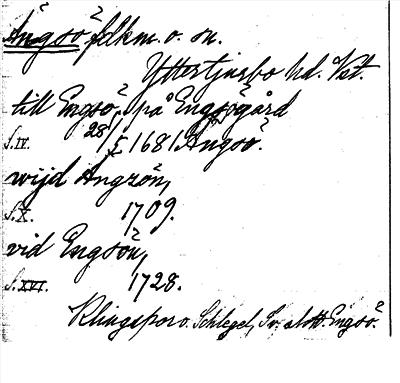 Ängsö fdkm. o. sn.
Yttertjurbo hd. Vstl.
till Engsö, på Engsögård
s. IV. 28/5 1681 Ängsö.
wijd Ängzön,
s. X. 1709.
vid Engsön,
s. XVI. 1728.
Klingspor o. Schlegel, Sv. slott. Engsö.